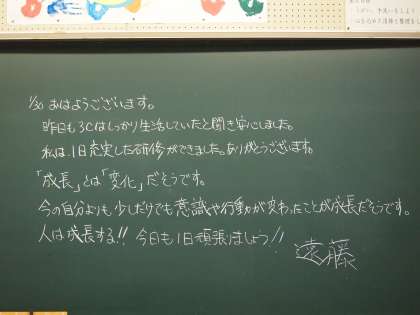 1/30 おはようございます。
昨日も3Cはしっかり生活していたと聞き安心しました。
私は、1日充実した研修ができました。ありがとうございます。
「成長」とは「変化」だそうです。
今の自分よりも少しだけでも意識や行動が変わったことが成長だそうです。
人は成長する!! 今日も1日頑張りましょう!!
遠藤